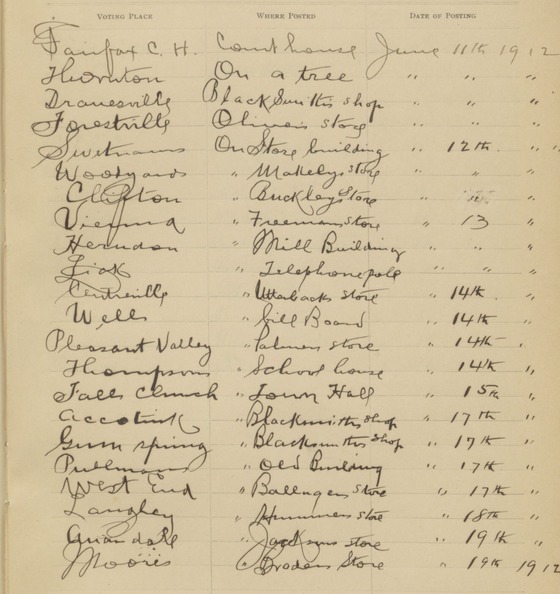 VOTING PLACE WHERE POSTED DATE OF POSTING
Fairfax C. H. Court house June 11th 1912
Thornton On a tree " " "
Dranesville Black Smiths shop " " "
Forestville Olivers store " " "
Swetnams On Store building " 12th "
Woodyards " Makelys store " " "
Clifton " Buckleys Store " "
Vienna " Freemans store " 13 "
Herndon " Mill Building " " "
" Telephone pole " " "
Centreville " Utterbacks store " 14th "
Wells " bill Board " 14th "
Pleasant Valley " Palmers store " 14th "
Thompsons " School house " 14th "
Falls Church " Town Hall " 15th "
Accotink " Blacksmiths shop " 17th "
Gum spring " Blacksmiths shop " 17th "
Pullmans " Old Building " 17th "
West End " Ballengers store " 17th "
Langley " Hummers store " 18th "
Anandale " Jacksons store " 19th "
Moores " Bradens Store " 19th 1912